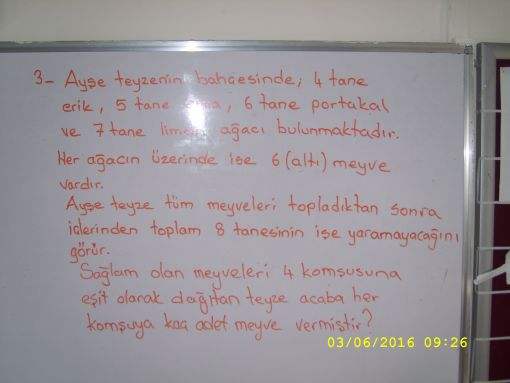 3- Ayşe teyzenin bahçesinde; 4 tane
erik, 5 tane elma, 6 tane portakal
ve 7 tane limon ağacı bulunmaktadır.
Her ağacın üzerinde ise 6 (altı) meyve
vardır.
Ayşe teyze tüm meyveleri topladıktan sonra
içlerinden toplam 8 tanesinin işe yaramayacağını
görür.
Sağlam olan meyveleri 4 komşusuna
eşit olarak dağıtan teyze acaba her
komşuya kaç adet meyve vermiştir?
03/06/2016 09:26